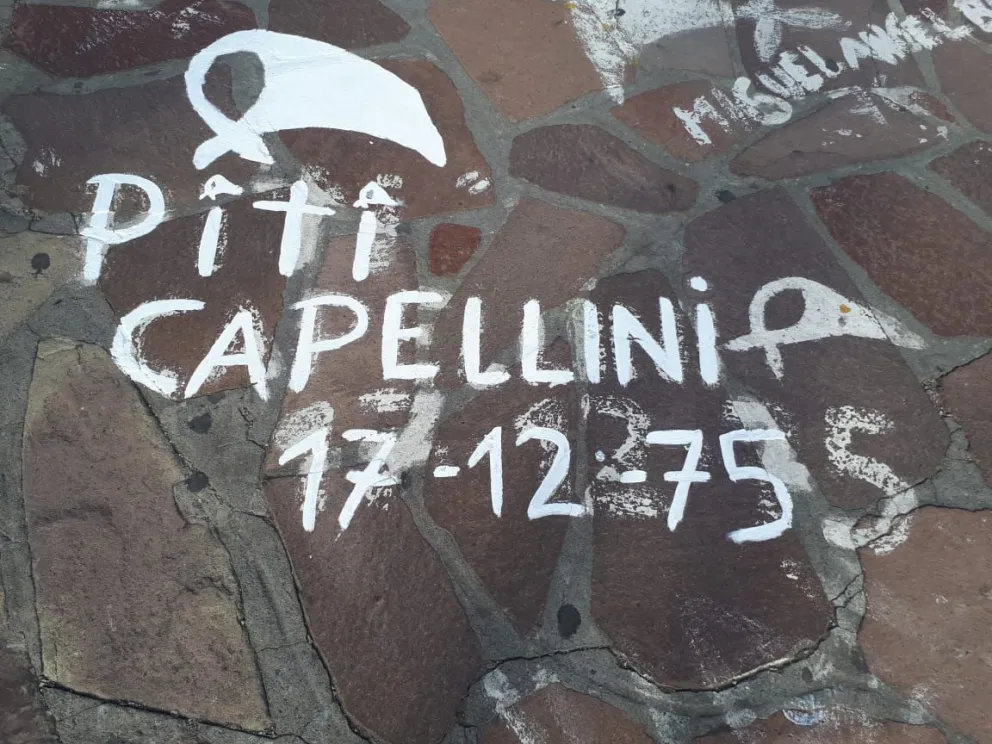 MIGUEL ANGEL B
Pîtî
CAPELLINi
17-12-75